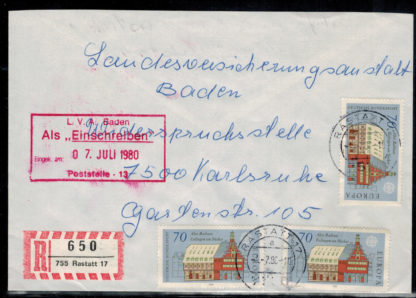 Landesversicherungsanstalt
Baden
L. V. A. Baden
Als „Einschreiben"
Eingek. am:
0 7. JULI 1980
Poststelle - 13
Widerspruchsstelle
7500 Karlsruhe
Gartenstr. 105
R
650
755 Rastatt 17
70
EUROPA
RASTATT
70
Altes Rathaus
Esslingen am Neckar
EUROPA
RASTATT 17
70
Altes Rathaus
Esslingen am Neckar
EUROPA